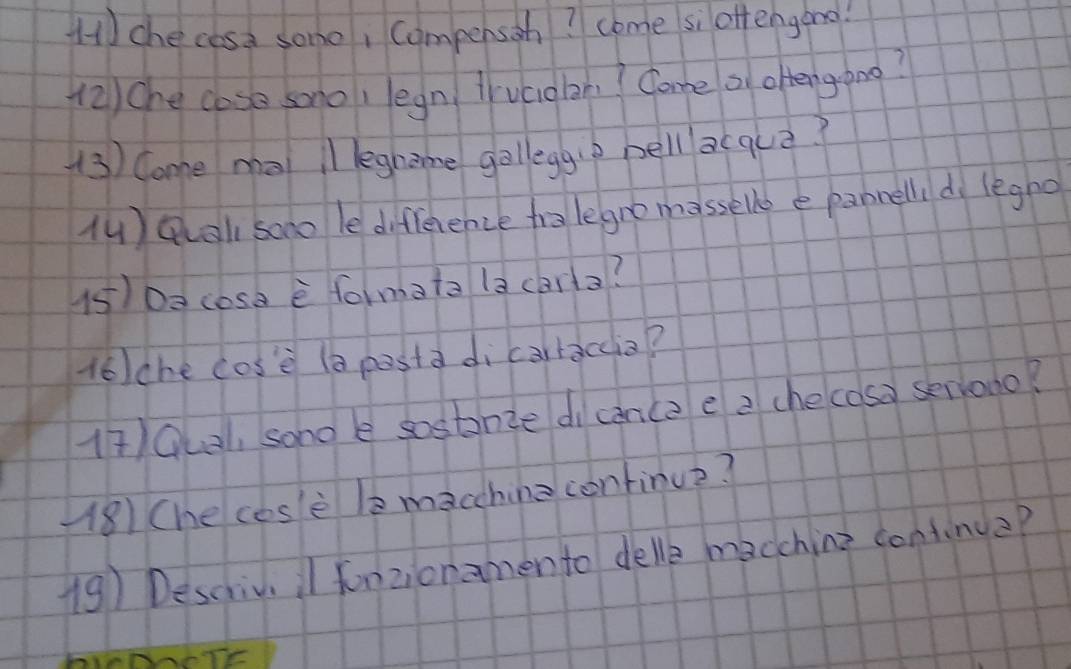 11) Che cosa sono i Compensati? come si ottengono?
12) Che cosa sono i legni truciolari? Come si ottengono?
13) Come mai il legname galleggia nell'acqua?
14) Quali sono le differenze tra legno massello e pannelli di legno
15) Da cosa è formata la carta?
16) che cos'è la pasta di cartaccia?
17) Quali sono le sostanze di carica e a che cosa servono?
18) Che cos'è la macchina continua?
19) Descrivi il funzionamento della macchina continua?
RISPOSTE